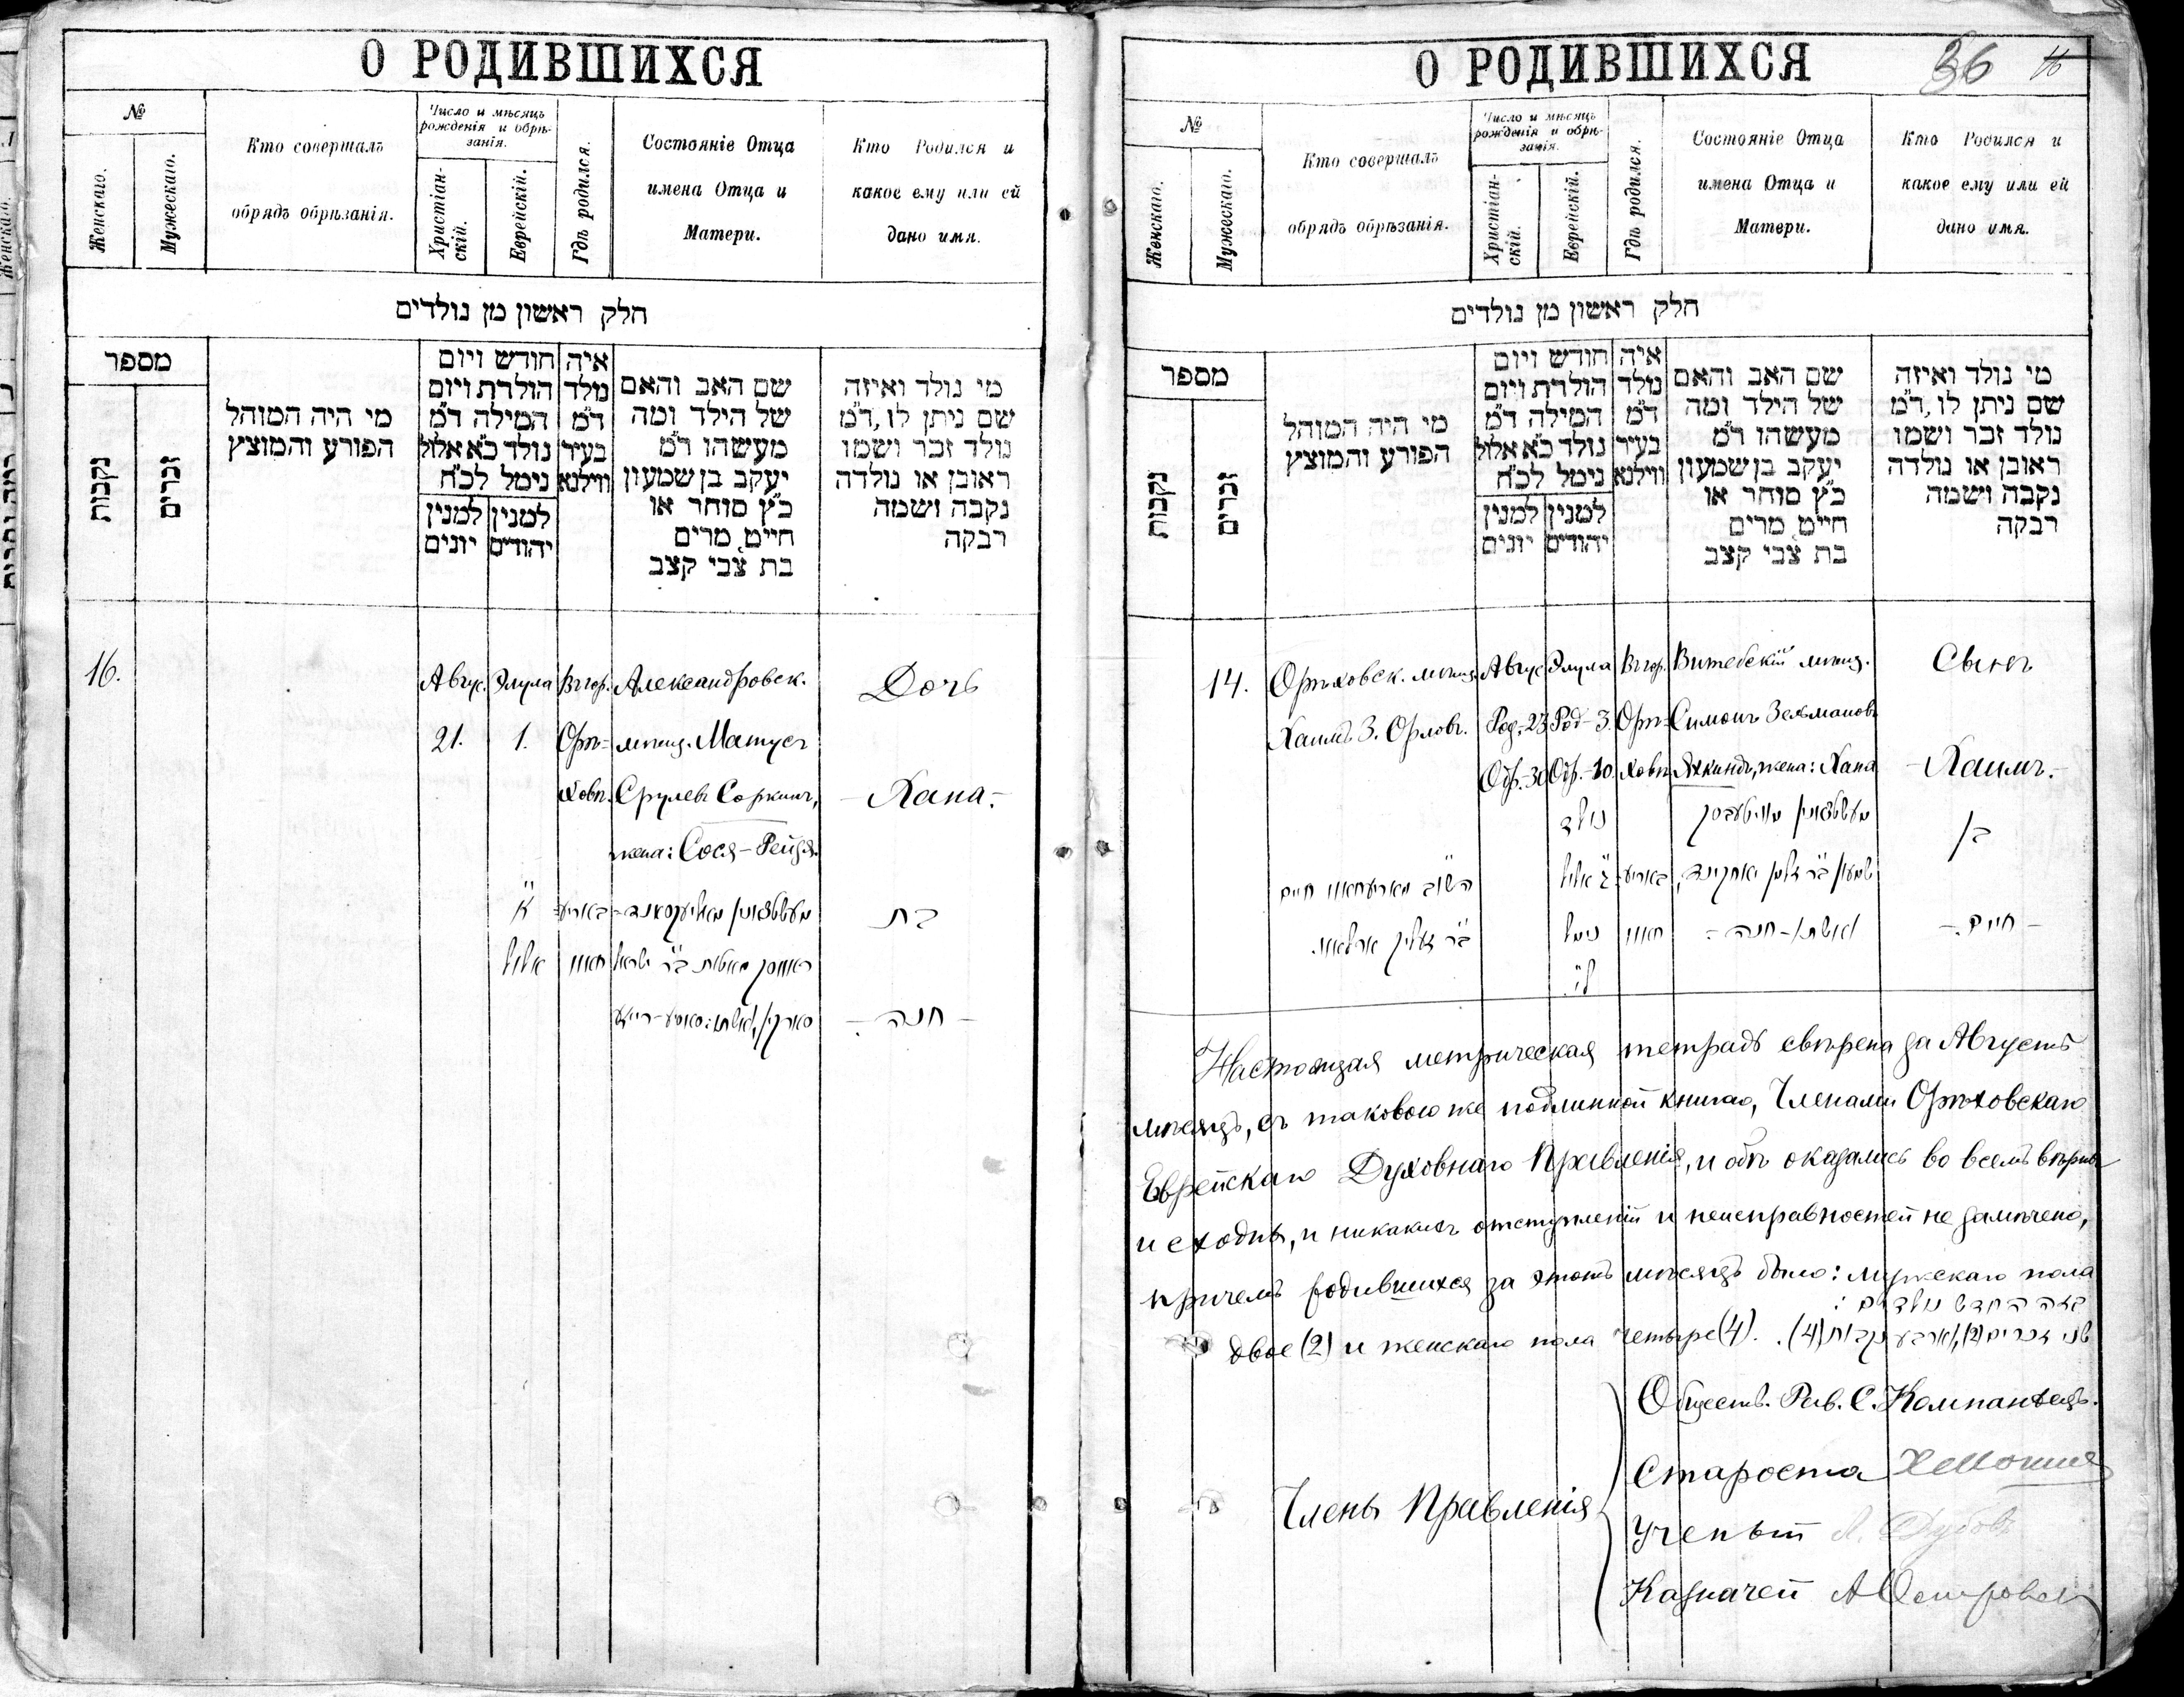 О РОДИВШИХСЯ
№
Женскаго.
Мужескаго.
Кто совершалъ
обрядъ обрѣзанія.
Число и мѣсяцъ
рожденія и обрѣ-
занія.
Христіан-
скій.
Еврейскій.
Гдѣ родился.
Состояніе Отца
имена Отца и
Матери.
Кто Родился и
какое ему или ей
дано имя.
חלק ראשון מן נולדים
מספר
נקבות
זכרים
מי היה המוהל
הפורע והמוצץ
חודש ויום
הולדת ויום
המילה ד״מ
נולד כ״א אלול
נימל לכ״ח
למנין יונים
למנין יהודים
איה
נולד
ד״מ
בעיר
ווילנא
שם האב והאם
של הילד ומה
מעשהו ד״מ
יעקב בן שמעון
כ״ץ סוחר או
חייט, מרים
בת צבי קצב
מי נולד ואיזה
שם ניתן לו, ד״מ
נולד זכר ושמו
ראובן או נולדה
נקבה ושמה
רבקה
16.
Авгус.
21.
Элула
1.
Въ гор.
Орѣ-
ховѣ.
Александровск.
мѣщ. Матусъ
Срулевъ Соркинъ,
жена: Сося-Рейзя.
Дочь
-Хана.-
א׳
אלול
באריע-
חאוו
בת
- חנה -
О РОДИВШИХСЯ
36
16
№
Женскаго.
Мужескаго.
Кто совершалъ
обрядъ обрѣзанія.
Число и мѣсяцъ
рожденія и обрѣ-
занія.
Христіан-
скій.
Еврейскій.
Гдѣ родился.
Состояніе Отца
имена Отца и
Матери.
Кто Родился и
какое ему или ей
дано имя.
חלק ראשון מן נולדים
מספר
נקבות
זכרים
מי היה המוהל
הפורע והמוצץ
חודש ויום
הולדת ויום
המילה ד״מ
נולד כ״א אלול
נימל לכ״ח
למנין יונים
למנין יהודים
איה
נולד
ד״מ
בעיר
ווילנא
שם האב והאם
של הילד ומה
מעשהו ד״מ
יעקב בן שמעון
כ״ץ סוחר או
חייט, מרים
בת צבי קצב
מי נולד ואיזה
שם ניתן לו, ד״מ
נולד זכר ושמו
ראובן או נולדה
נקבה ושמה
רבקה
14.
Орѣховск. мѣщ.
Хаимъ З. Орловъ.
Авгус.
Род.-23
Обр.-30
Элула
Род-3.
Обр.-10.
Въ гор.
Орѣ-
ховѣ.
Витебскій мѣщ.
Симонъ Зельмановъ
Яхкиндъ, жена: Хана
Сынъ
-Хаимъ.-
נולד
ג׳ אלול
נימול
לי׳
באריע-
חאוו
ואשתו - חנה -
בן
- חיים -
Настоящая метрическая тетрадь свѣрена за Августъ
мѣсяцъ, съ таковою же подлинной книгою, Членами Орѣховскаго
Еврейскаго Духовнаго Правленія, и обѣ оказались во всемъ вѣрны
и сходны, и никакихъ отступленій и неисправностей не замѣчено,
причемъ родившихся за этотъ мѣсяцъ было: мужскаго пола
בזה החדש נולדים :
двое (2) и женскаго пола четыре (4). שני זכרים (2), וארבע נקבות (4).
Члены Правленія
Обществ. Рав. С. Компанѣецъ.
Староста
Ученый Л. Дубовъ
Казначей А Островск